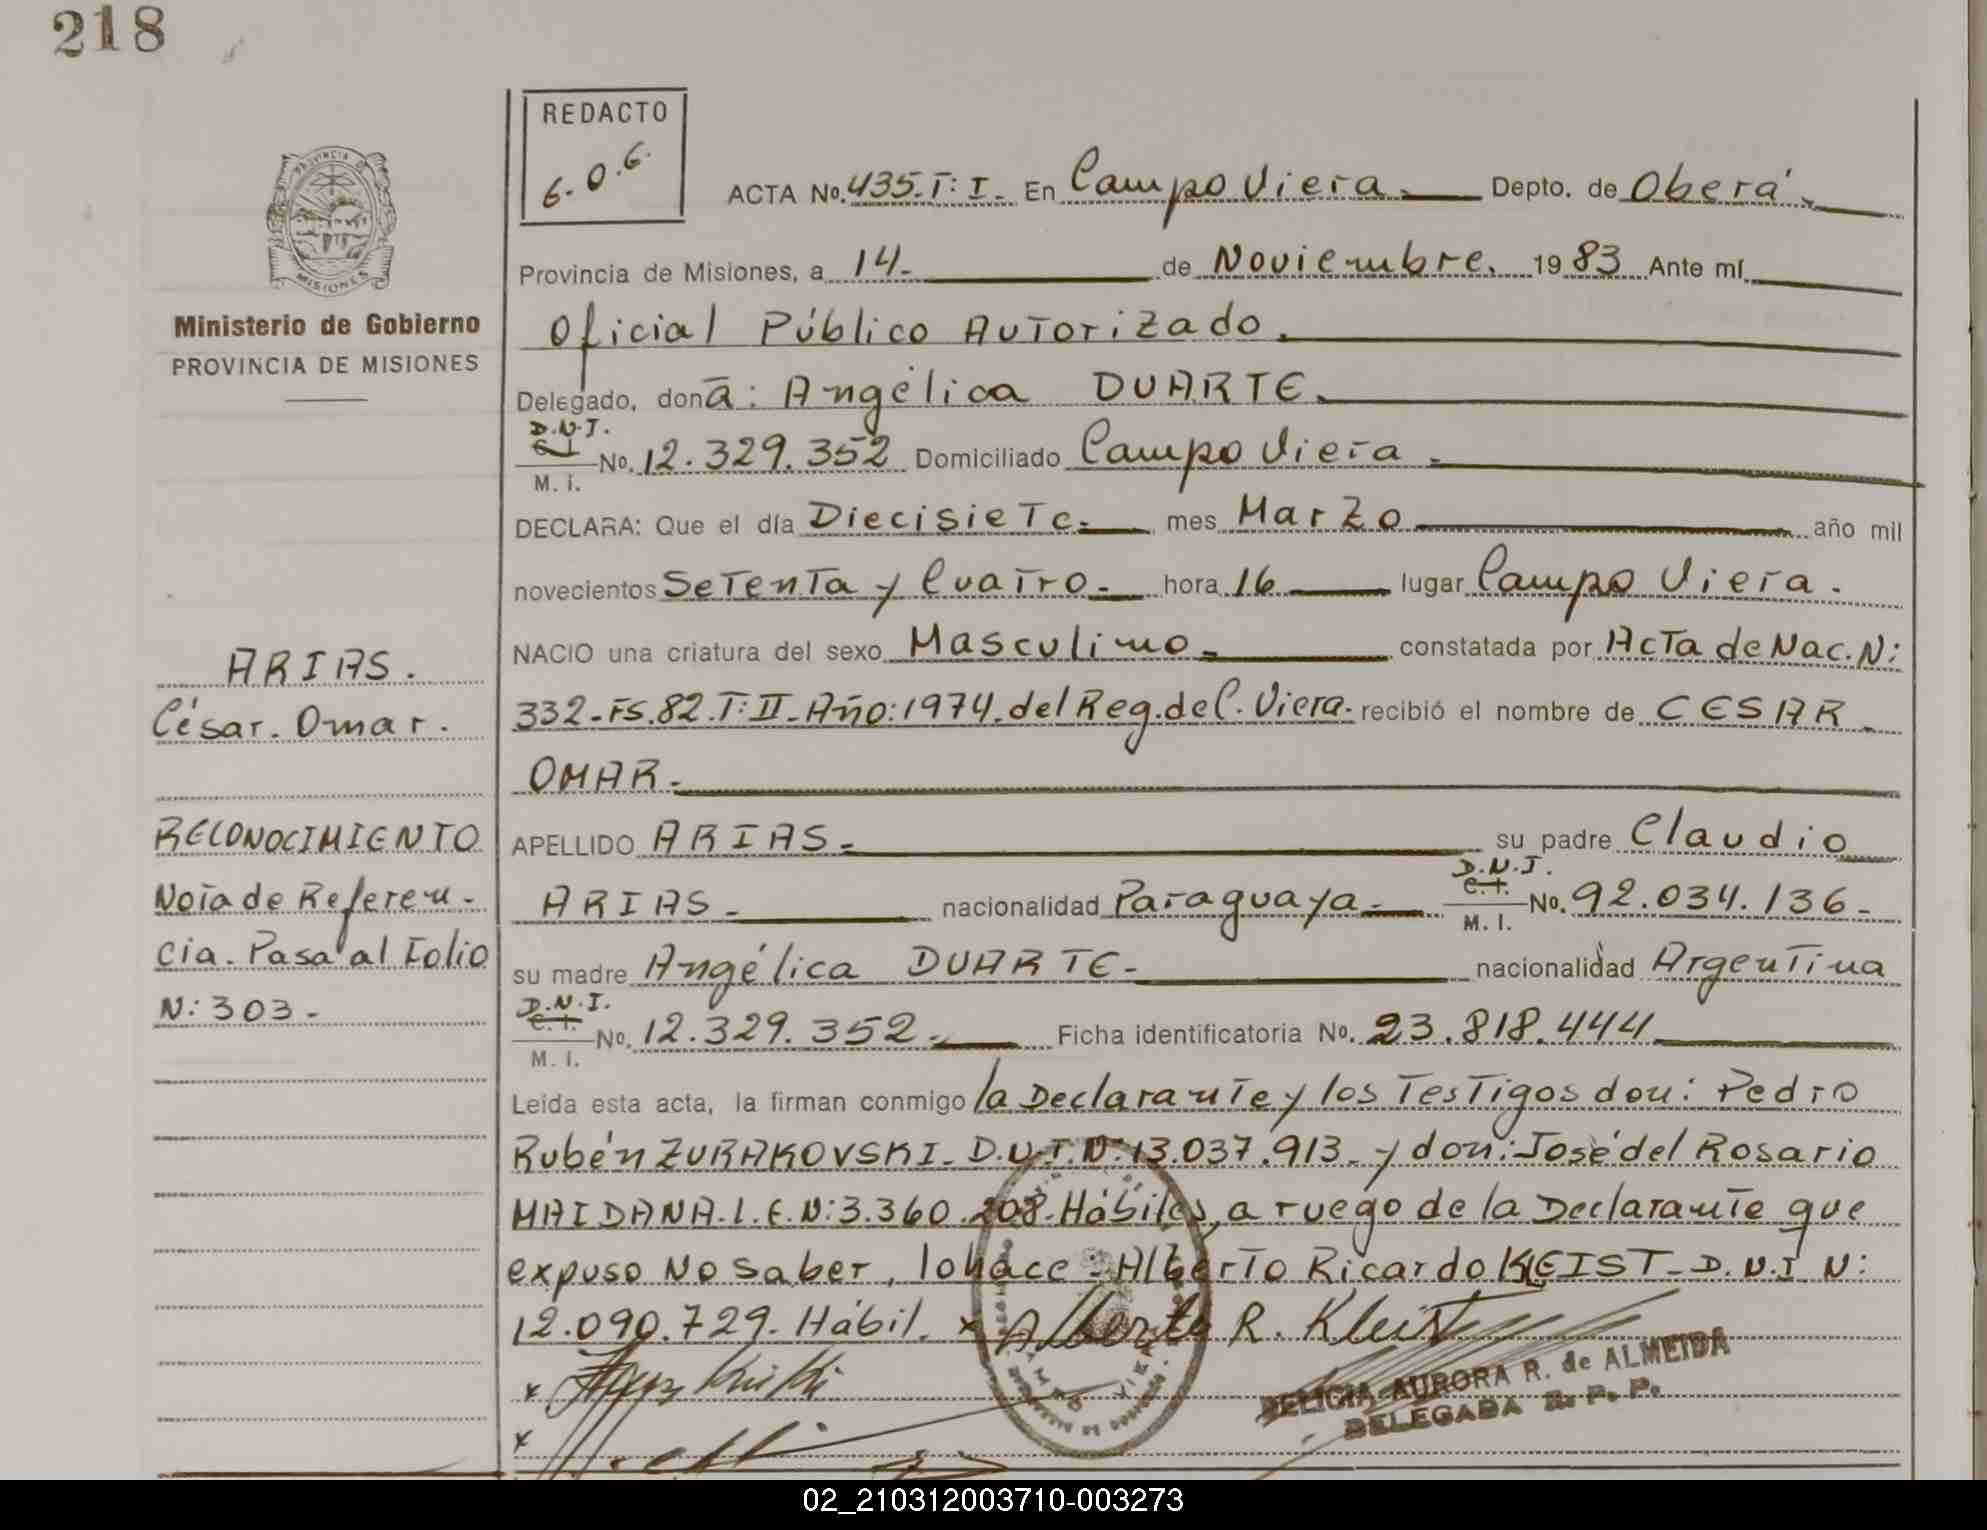 218
REDACTO
6.0.6.
ACTA No. 435.T: I. En Campo Viera. Depto. de Oberá.
Provincia de Misiones, a 14. de Noviembre. 1983 Ante mí
Oficial Público Autorizado.
Delegado, donā: Angélica DUARTE.
D.N.I.
C.I. No. 12.329.352 Domiciliado Campo Viera.
M. I.
DECLARA: Que el día Diecisiete. mes Marzo año mil
novecientos Setenta y Cuatro. hora 16 lugar Campo Viera.
NACIO una criatura del sexo Masculino. constatada por Acta de Nac. N:
332-Fs.82.T: II-Año:1974.del Reg.de C. Viera. recibió el nombre de CESAR
OMAR.
APELLIDO ARIAS. su padre Claudio
D.N.I.
ARIAS. nacionalidad Paraguaya. C.I. No. 92.034.136.
M. I.
su madre Angélica DUARTE. nacionalidad Argentina
D.N.I.
C.I. No. 12.329.352. Ficha identificatoria No. 23.818.444
M. I.
Leída esta acta, la firman conmigo la Declarante y los Testigos don: Pedro
Rubén ZURAKOVSKI. D.N.I.N:13.037.913. y don: José del Rosario
MAIDANA.L.E.N:3.360.208. Hábiles, a ruego de la Declarante que
expuso No saber, lo hace. Alberto Ricardo KLEIST. D.N.I N:
12.090.729. Hábil. x Alberto R. Kleist
x
x
DELICIA AURORA R. de ALMEIDA
DELEGADA R. P. P.
PROVINCIA DE
MISIONES
Ministerio de Gobierno
PROVINCIA DE MISIONES
ARIAS.
César. Omar.
RECONOCIMIENTO
Nota de Referen-
cia. Pasa al Folio
N: 303.
02_210312003710-003273